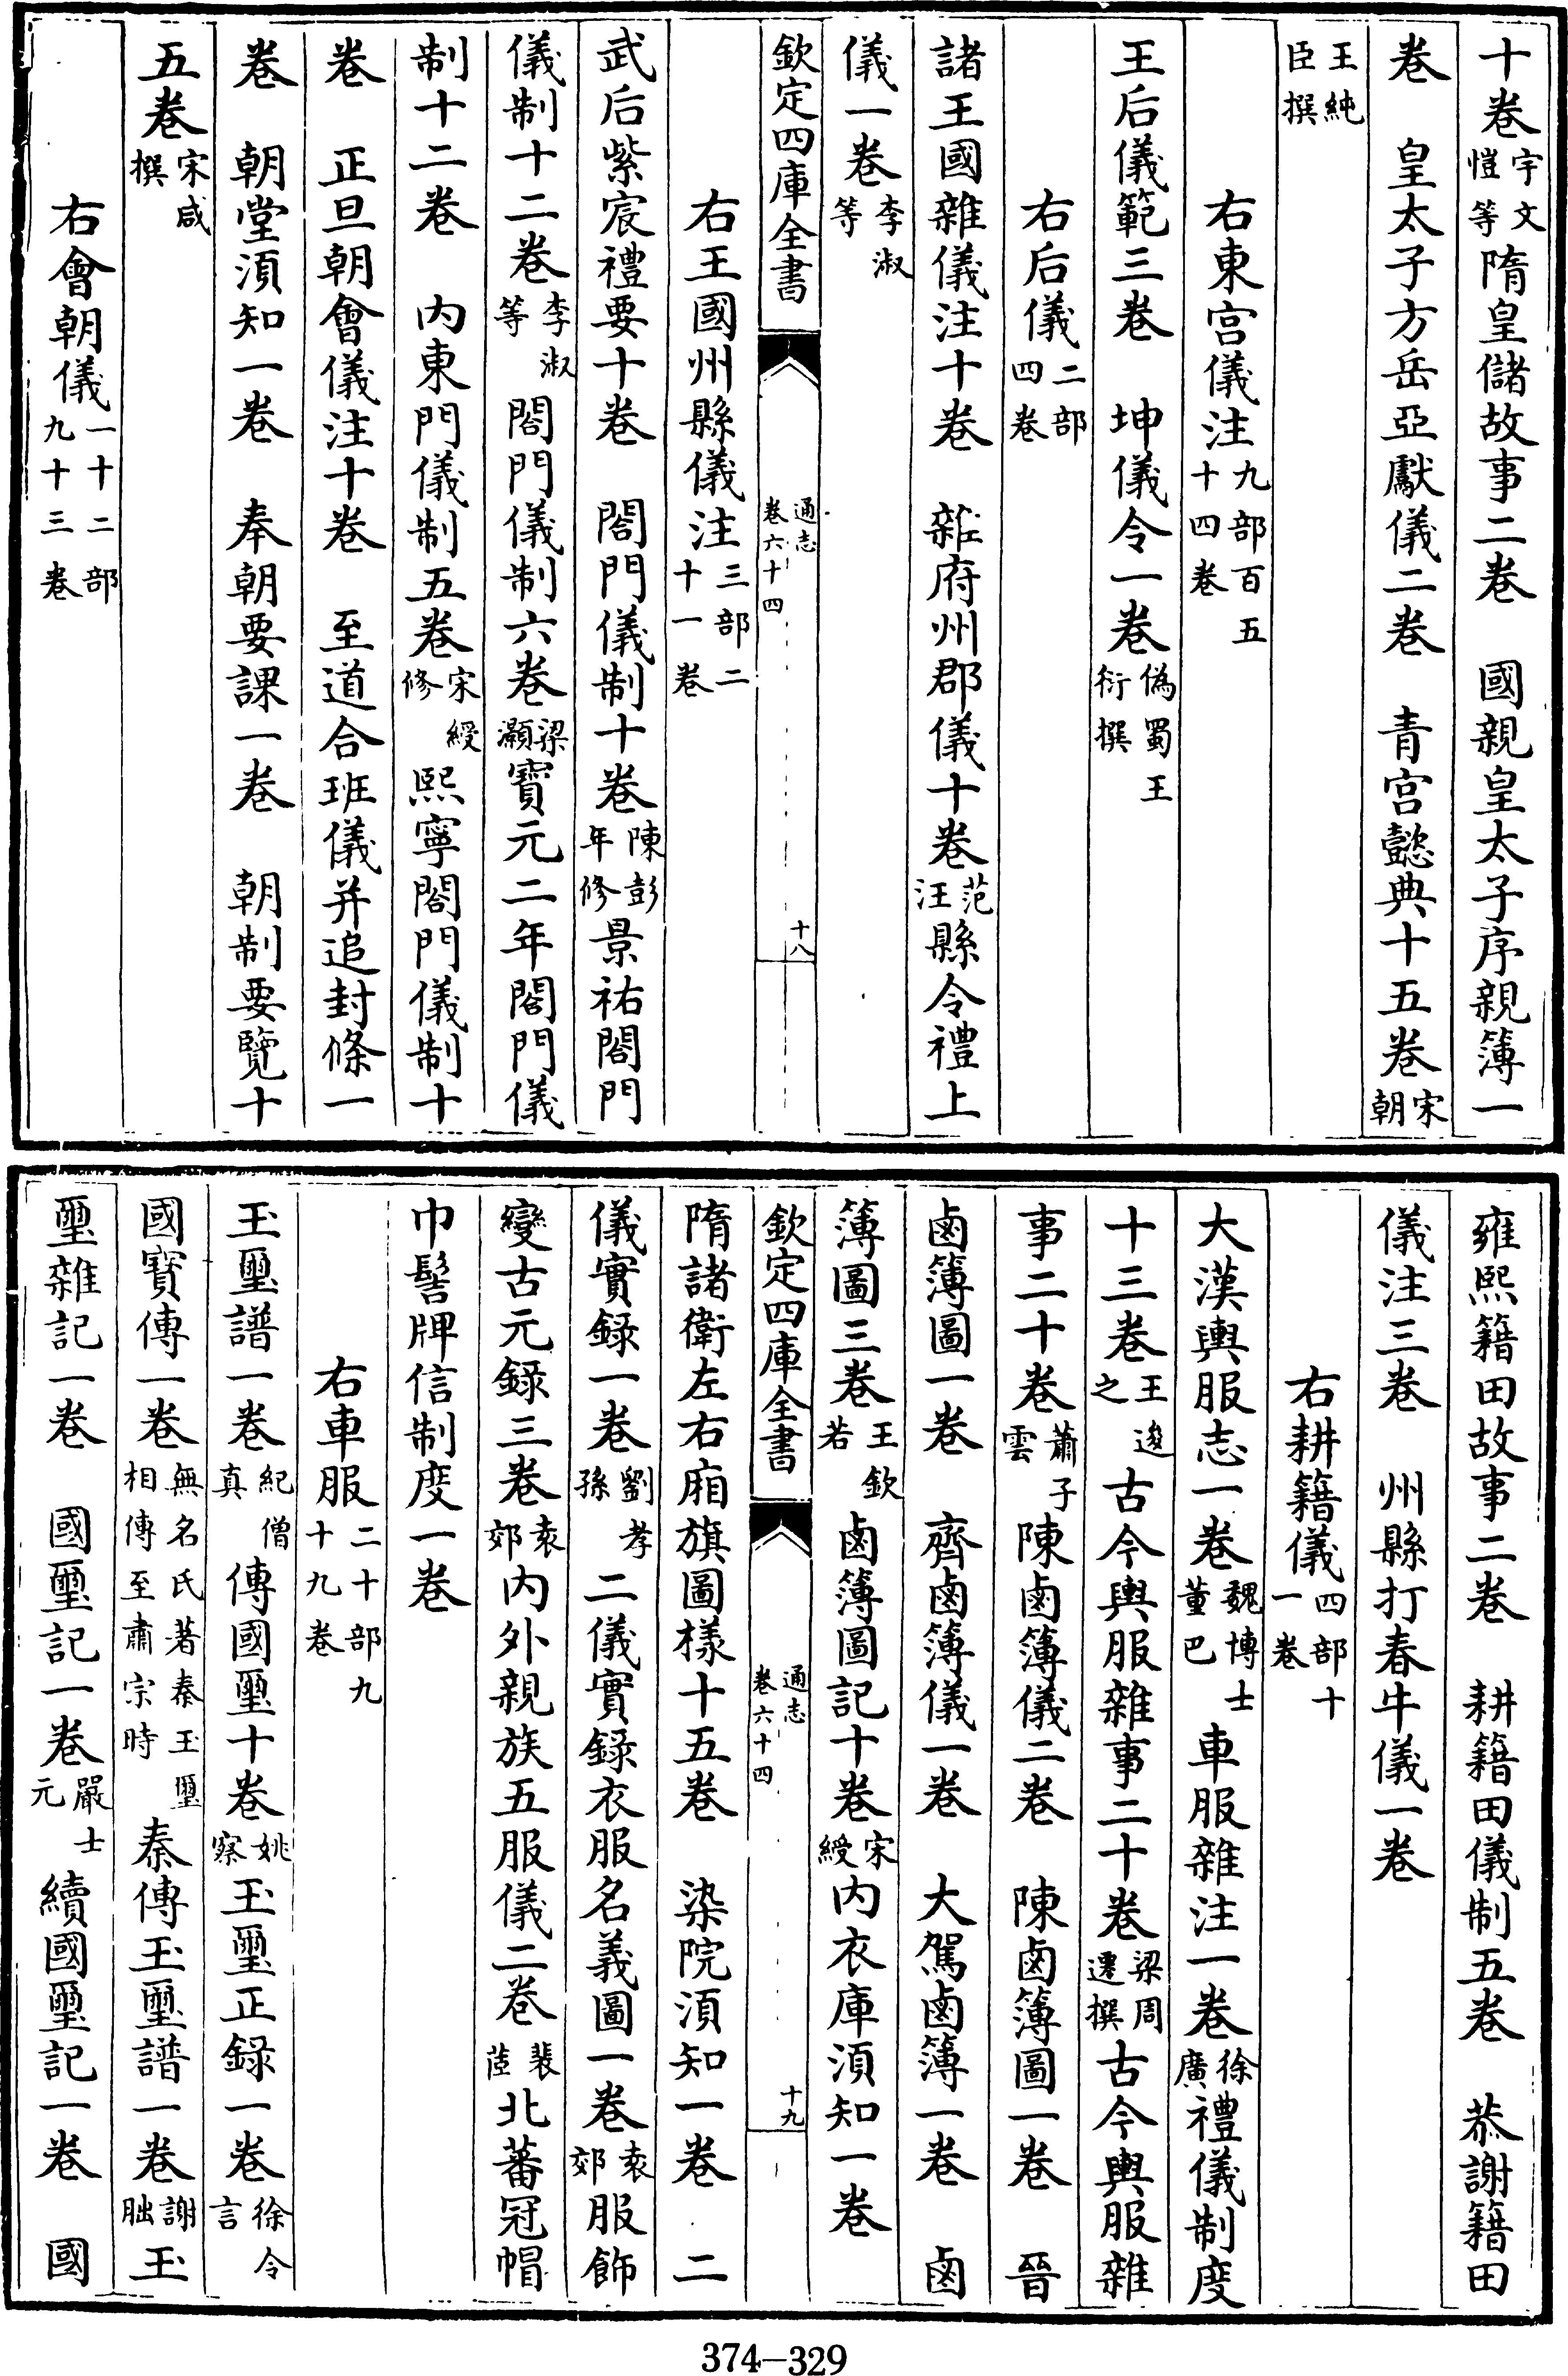 十卷宇文愷等隋皇儲故事二卷　國親皇太子序親簿一
卷　皇太子方岳亞獻儀二卷　青宮懿典十五卷宋朝
王純臣撰
右東宮儀注九部百五十四卷
王后儀範三卷　坤儀令一卷偽蜀王衍撰
右后儀二部四卷
諸王國雜儀注十卷　雜府州郡儀十卷范汪縣令禮上
儀一卷李淑等
欽定四庫全書
通志
卷六十四
十八
右王國州縣儀注三部二十一卷
武后紫宸禮要十卷　閤門儀制十卷陳彭年修景祐閤門
儀制十二卷李淑等　閤門儀制六卷梁灝寶元二年閤門儀
制十二卷　內東門儀制五卷宋綬修熙寧閤門儀制十
卷　正旦朝會儀注十卷　至道合班儀并追封條一
卷　朝堂須知一卷　奉朝要課一卷　朝制要覽十
五卷宋咸撰
右會朝儀一十二部九十三卷
雍熙籍田故事二卷　耕籍田儀制五卷　恭謝籍田
儀注三卷　州縣打春牛儀一卷
右耕籍儀四部十一卷
大漢輿服志一卷魏博士董巴　車服雜注一卷徐廣禮儀制度
十三卷王逡之古今輿服雜事二十卷梁周遷撰古今輿服雜
事二十卷蕭子雲陳鹵簿儀二卷　陳鹵簿圖一卷　晉
鹵簿圖一卷　齊鹵簿儀一卷　大駕鹵簿一卷　鹵
簿圖三卷王欽若鹵簿圖記十卷宋綬內衣庫須知一卷
欽定四庫全書
通志
卷六十四
十九
隋諸衛左右廂旗圖樣十五卷　染院須知一卷　二
儀實錄一卷劉孝孫　二儀實錄衣服名義圖一卷袁郊服飾
變古元錄三卷袁郊內外親族五服儀二卷裴茝北蕃冠帽
巾髻牌信制度一卷
右車服二十部九十九卷
玉璽譜一卷紀僧真　傳國璽十卷姚察玉璽正錄一卷徐令言
國寶傳一卷無名氏著秦玉璽相傳至肅宗時　秦傳玉璽譜一卷謝朏玉
璽雜記一卷　國璽記一卷嚴士元續國璽記一卷　國
374—329